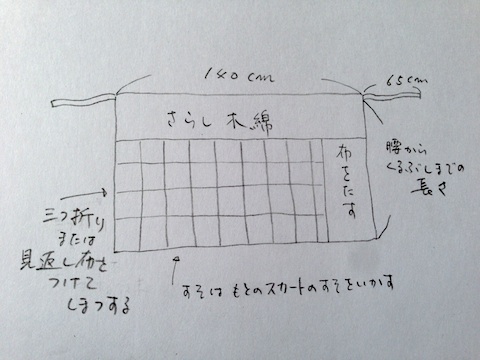 140cm
65cm
さらし木綿
布をたす
腰から
くるぶしまでの
長さ
三つ折り
または
見返し布を
つけて
しまつする
すそはもとのスカートのすそをいかす